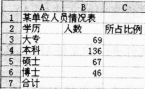 A B C
1 某单位人员情况表
2 学历 人数 所占比例
3 大专 69
4 本科 136
5 硕士 67
6 博士 46
7 合计